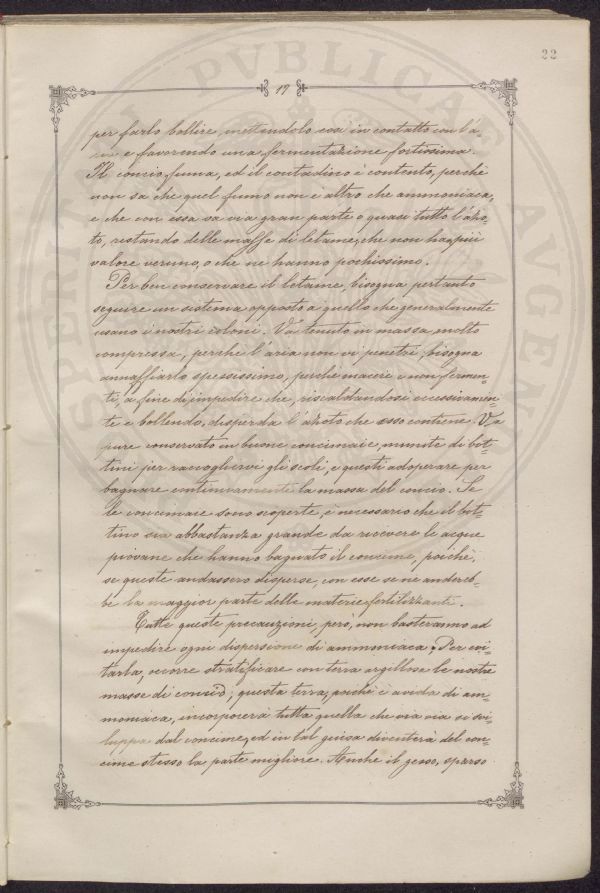 22
17
per farlo bollire, mettendolo così in contatto con l'a=
ria e favorendo una fermentazione fortissima.
Il concio fuma, ed il contadino è contento, perchè
non sa che quel fumo non è altro che ammoniaca,
e che con essa sa via gran parte o quasi tutto l'azo=
to, restando delle masse di letame, che non ha più
valore veruno, o che ne hanno pochissimo.
Per ben conservare il letame, bisogna pertanto
seguire un sistema opposto a quello che generalmente
usano i nostri coloni. Va tenuto in massa molto
compressa, perchè l'aria non vi penetri, bisogna
annaffiarlo spessissimo, perchè maceri e non fermen=
ti, a fine di impedire che, riscaldandosi eccessivamen=
te e bollendo, disperda l'azoto che esso contiene. Va
pure conservato in buone concimaie, munite di bot=
tini per raccogliervi gli scoli, e questi adoperare per
bagnare continuamente la massa del concio. Se
le concimaie sono scoperte, è necessario che il bot=
tino sia abbastanza grande da ricevere le acque
piovane che hanno bagnato il concime, poichè,
se queste andassero disperse, con esse se ne andereb=
be la maggior parte delle materie fertilizzanti.
Tutte queste precauzioni, però, non basteranno ad
impedire ogni dispersione di ammoniaca. Per evi=
tarla, occorre stratificare con terra argillosa le nostre
masse di concio; questa terra, poichè è avida di am=
moniaca, incorporerà tutta quella che via via si svi=
luppa dal concime, ed in tal guisa diventerà del con=
cime stesso la parte migliore. Anche il gesso, sparso
SPERITAN PVBLICAE AVGENDO